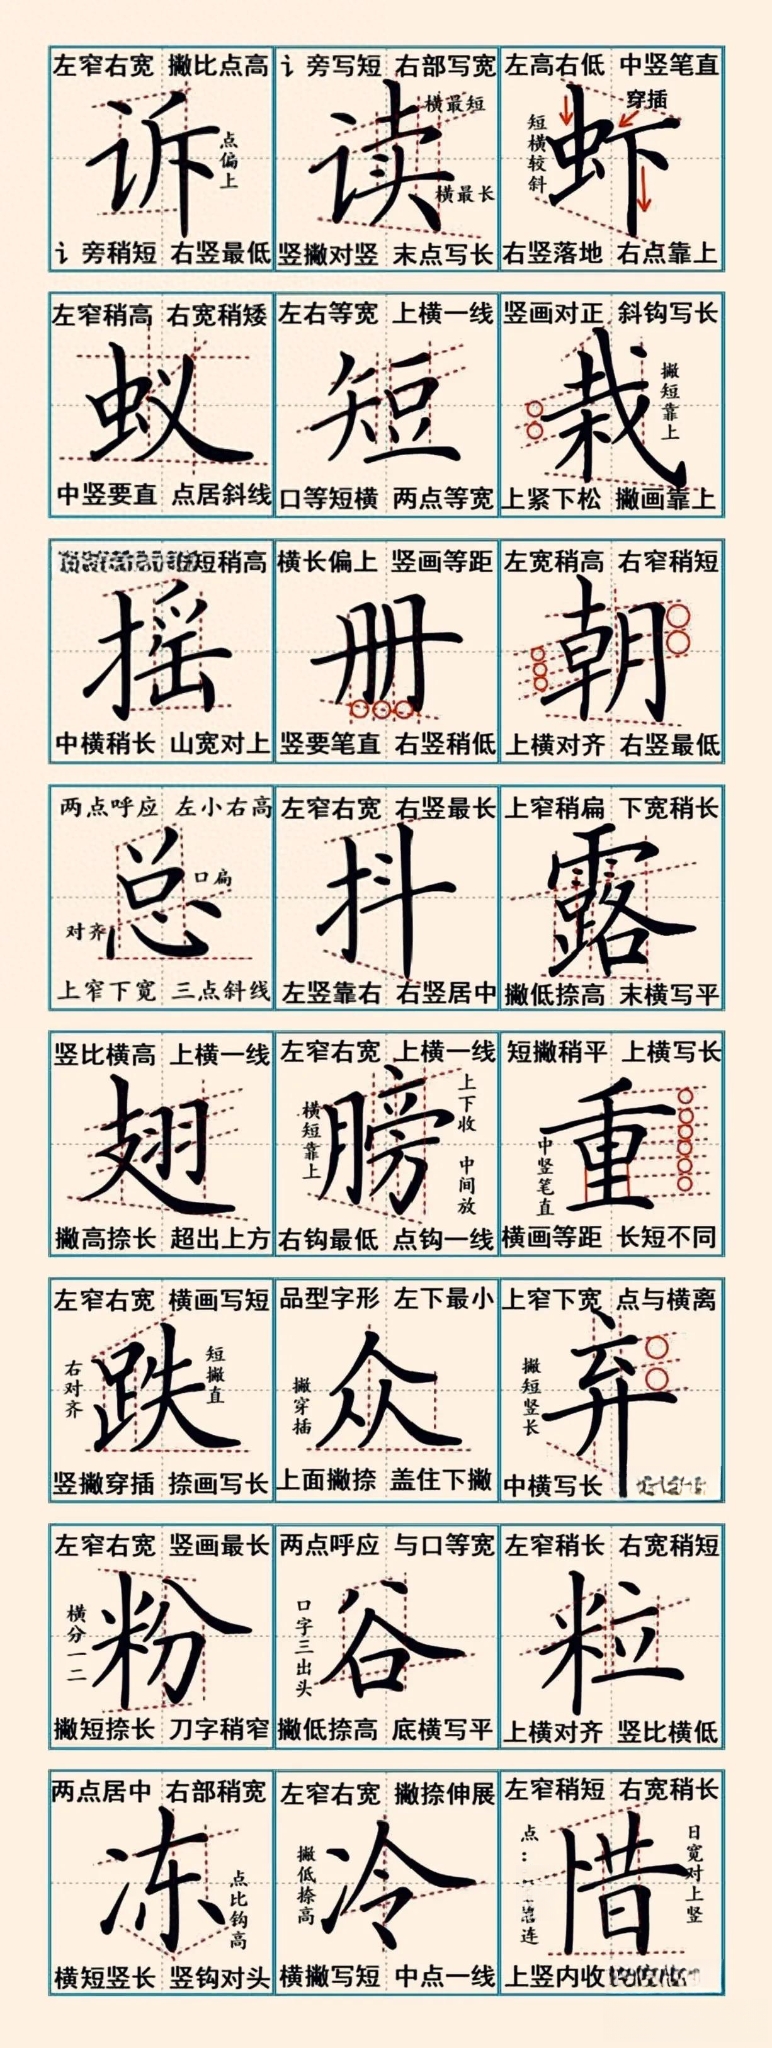 左窄右宽 撇比点高
诉
点偏上
讠旁稍短 右竖最低
讠旁写短 右部写宽
横最短
读
横最长
竖撇对竖 末点写长
左高右低 中竖笔直
穿插
短横较斜
虾
右竖落地 右点靠上
左窄稍高 右宽稍矮
蚁
中竖要直 点居斜线
左右等宽 上横一线
短
口等短横 两点等宽
竖画对正 斜钩写长
撇短靠上
栽
上紧下松 撇画靠上
短稍高
摇
中横稍长 山宽对上
横长偏上 竖画等距
册
竖要笔直 右竖稍低
左宽稍高 右窄稍短
朝
上横对齐 右竖最低
两点呼应 左小右高
总
口扁
对齐
上窄下宽 三点斜线
左窄右宽 右竖最长
抖
左竖靠右 右竖居中
上窄稍扁 下宽稍长
露
撇低捺高 末横写平
竖比横高 上横一线
翅
撇高捺长 超出上方
左窄右宽 上横一线
横短靠上
膀
上下收 中间放
右钩最低 点钩一线
短撇稍平 上横写长
中竖笔直
重
横画等距 长短不同
左窄右宽 横画写短
右对齐
跌
短撇直
竖撇穿插 捺画写长
品型字形 左下最小
撇穿插
众
上面撇捺 盖住下撇
上窄下宽 点与横离
撇短竖长
弃
中横写长
左窄右宽 竖画最长
横分一二
粉
撇短捺长 刀字稍窄
两点呼应 与口等宽
口字三出头
谷
撇低捺高 底横写平
左窄稍长 右宽稍短
粒
上横对齐 竖比横低
两点居中 右部稍宽
冻
点比钩高
横短竖长 竖钩对头
左窄右宽 撇捺伸展
撇低捺高
冷
横撇写短 中点一线
左窄稍短 右宽稍长
点：
连
惜
日宽对上竖
上竖内收